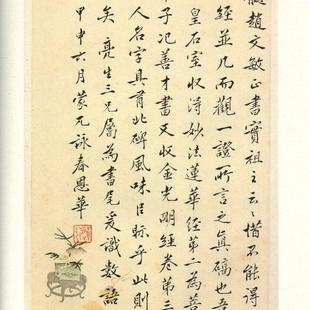 髓趙文敏正書實祖主云云惜不能得
經並几而觀一證所言之真礭也吾
皇石室收得妙法蓮華經第二為善
子氾善才書又收金光明經卷第三
人名字具有此碑風味臣眎乎此則
矣亮生三兄屬為書尾爰識數語
甲申六月蒙兀詠春恩華